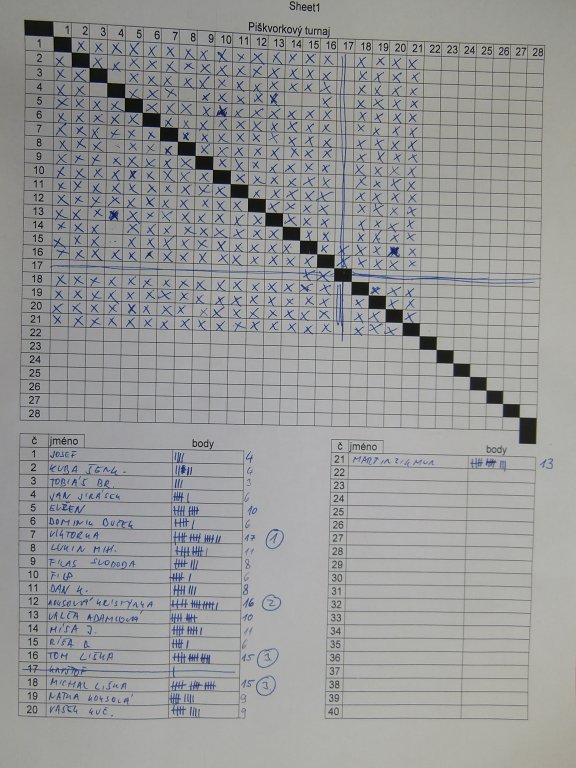 Sheet1
Piškvorkový turnaj
1 2 3 4 5 6 7 8 9 10 11 12 13 14 15 16 17 18 19 20 21 22 23 24 25 26 27 28
1
2
3
4
5
6
7
8
9
10
11
12
13
14
15
16
17
18
19
20
21
22
23
24
25
26
27
28
č jméno body
1 JOSEF 4
2 KUBA 4
3 TOBIÁŠ BR. 3
4 JAN JIRÁSEK 6
5 EVŽEN 10
6 DOMINIK DUŠEK 6
7 VIKTORKA 17 1
8 LUKIN MIH. 11
9 FILAS SVOBODA 8
10 FILP 6
11 DAN K. 8
12 KRISTÝNKA 16 2
13 VALČA ADAMCOVÁ 10
14 MÍŠA J. 11
15 6
16 TOM LIŠKA 15 3
17 KRYŠTOF
18 MICHAL LIŠKA 15 3
19 9
20 VAŠEK 9
č jméno body
21 MARTIN ZIKMUN 13
22
23
24
25
26
27
28
29
30
31
32
33
34
35
36
37
38
39
40